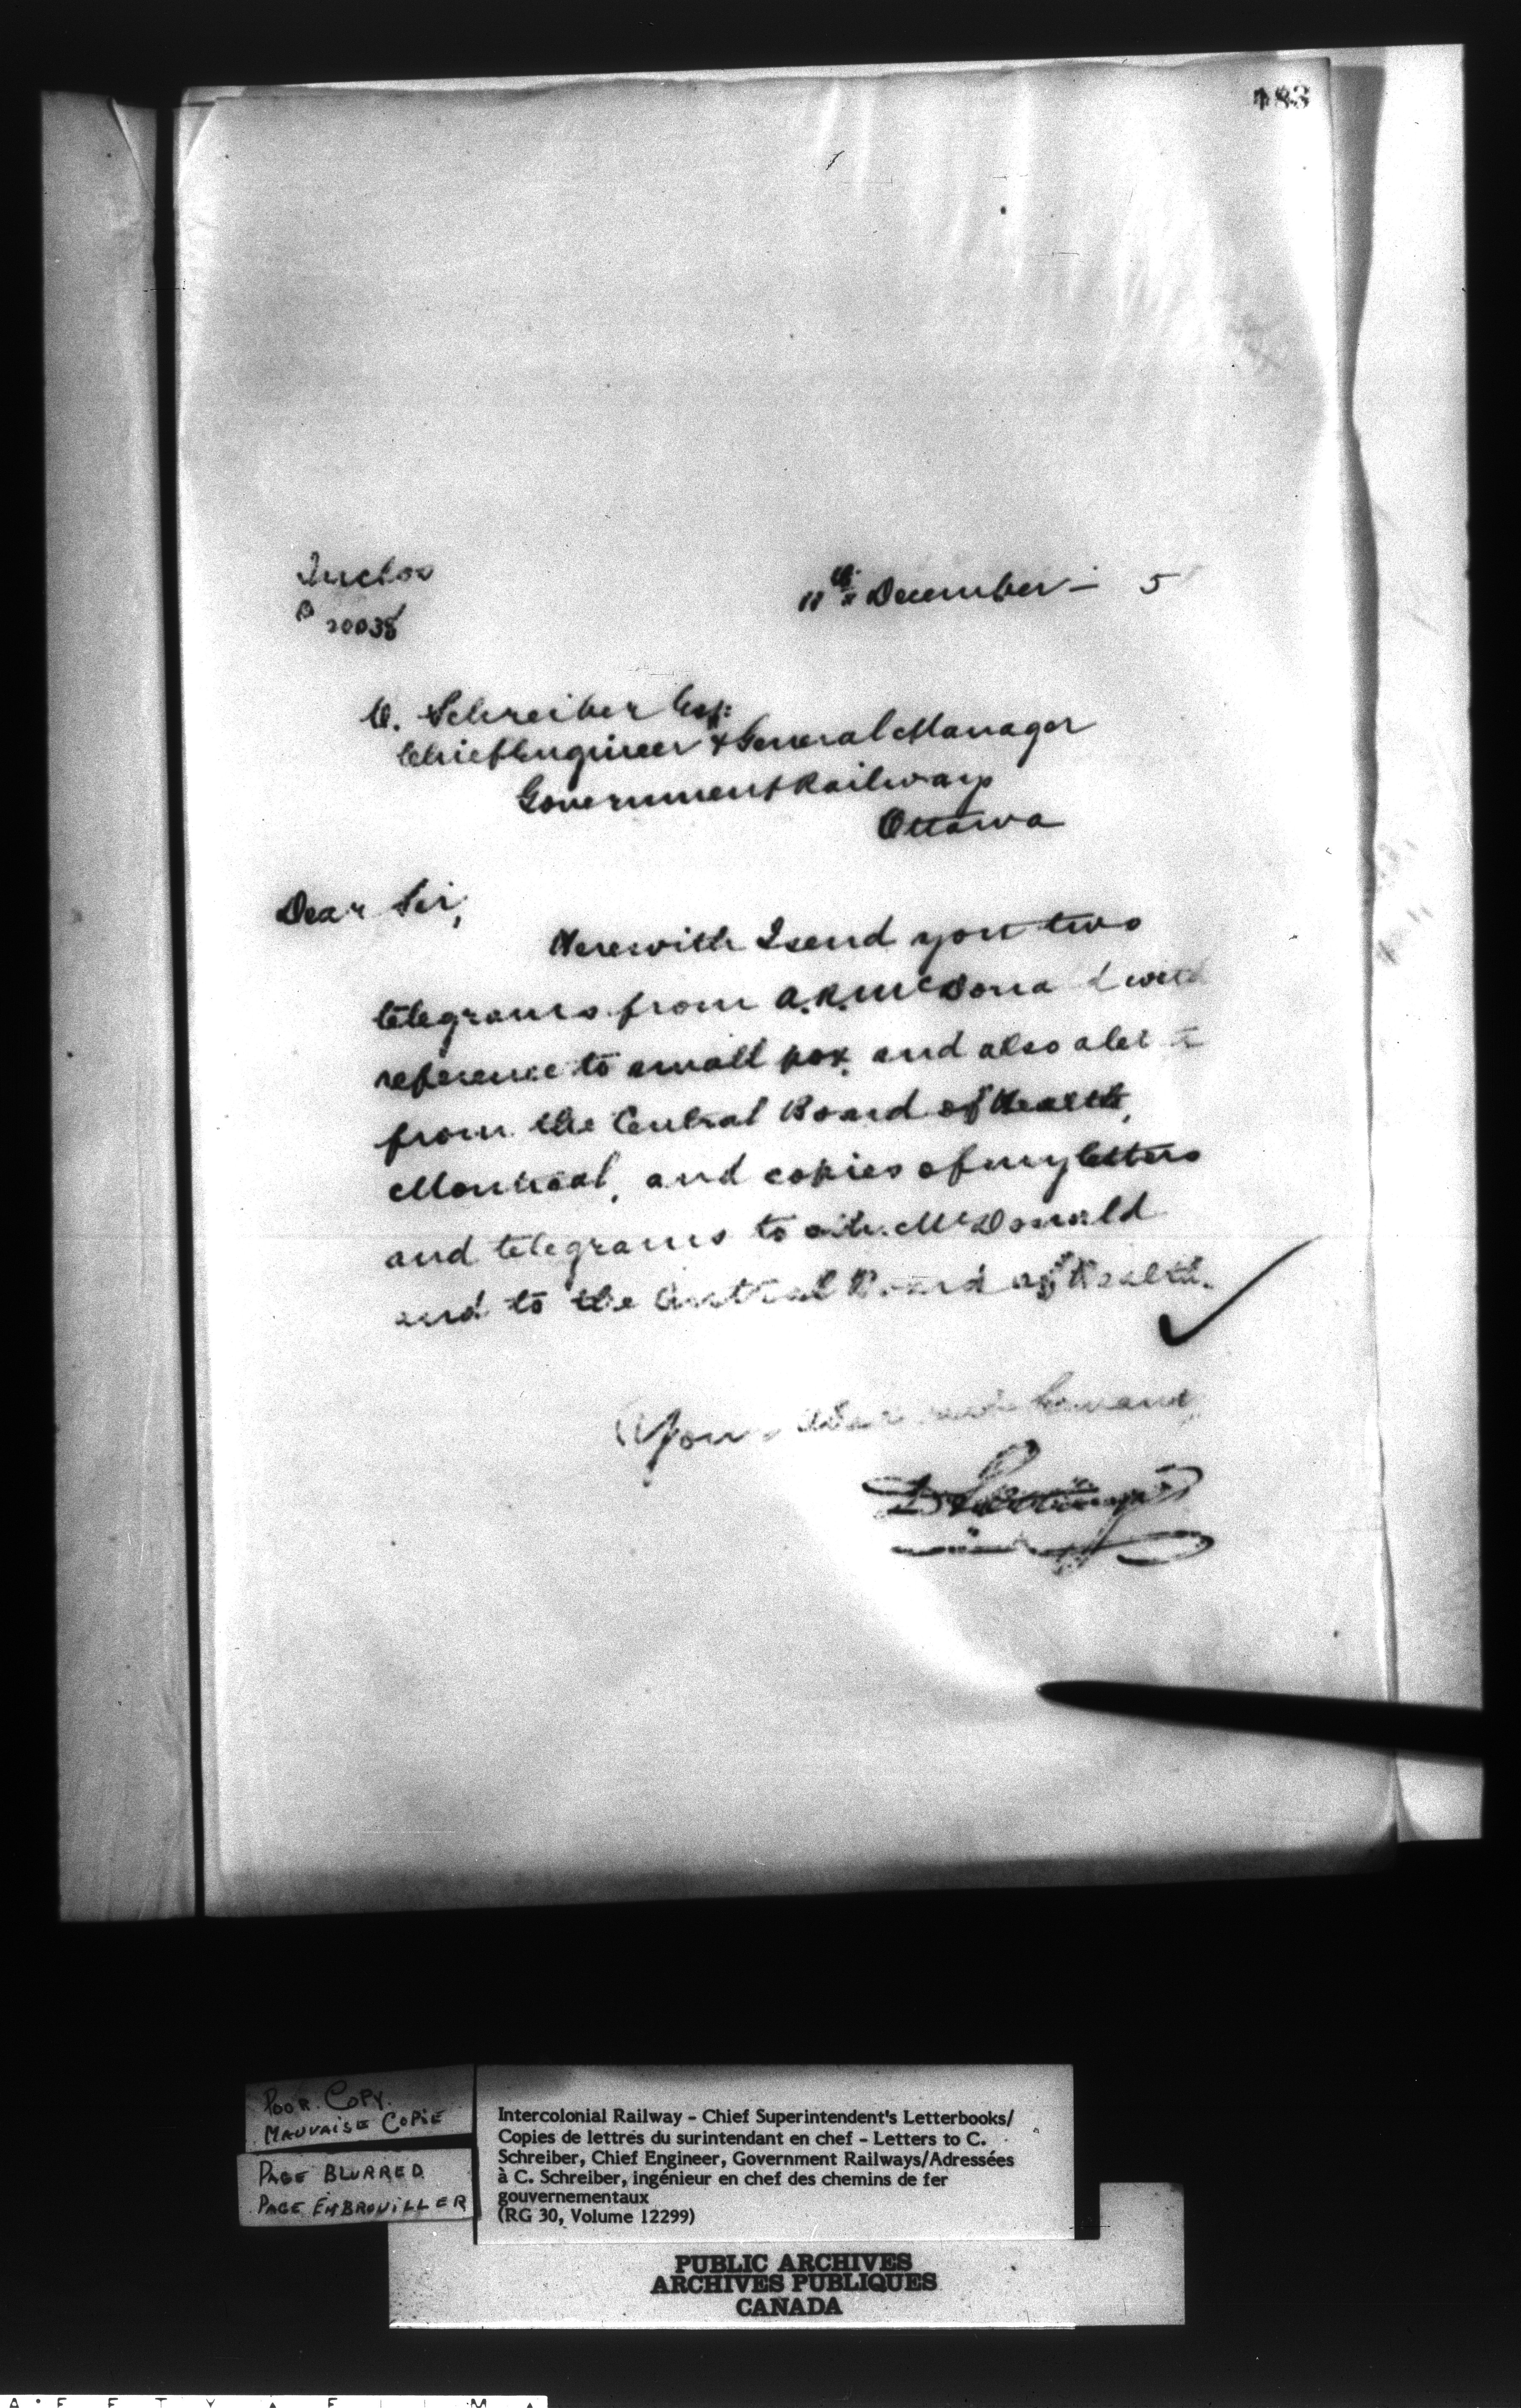 183
Inclos
P 20038
11th December – 5
C. Schreiber Esq:
Chief Engineer & General Manager
Government Railways
Ottawa
Dear Sir,
Herewith I send you two
telegrams from A.R. McDonald with
reference to small pox, and also a let
from the Central Board of Health,
Montreal, and copies of my letters
and telegrams to Mr. McDonald
and to the Central Board of Health.
Your
D Pottinger
POOR COPY.
MAUVAISE COPIE
PAGE BLURRED
PAGE EMBROUILLER
Intercolonial Railway - Chief Superintendent's Letterbooks/
Copies de lettres du surintendant en chef - Letters to C.
Schreiber, Chief Engineer, Government Railways/Adressées
à C. Schreiber, ingénieur en chef des chemins de fer
gouvernementaux
(RG 30, Volume 12299)
PUBLIC ARCHIVES
ARCHIVES PUBLIQUES
CANADA